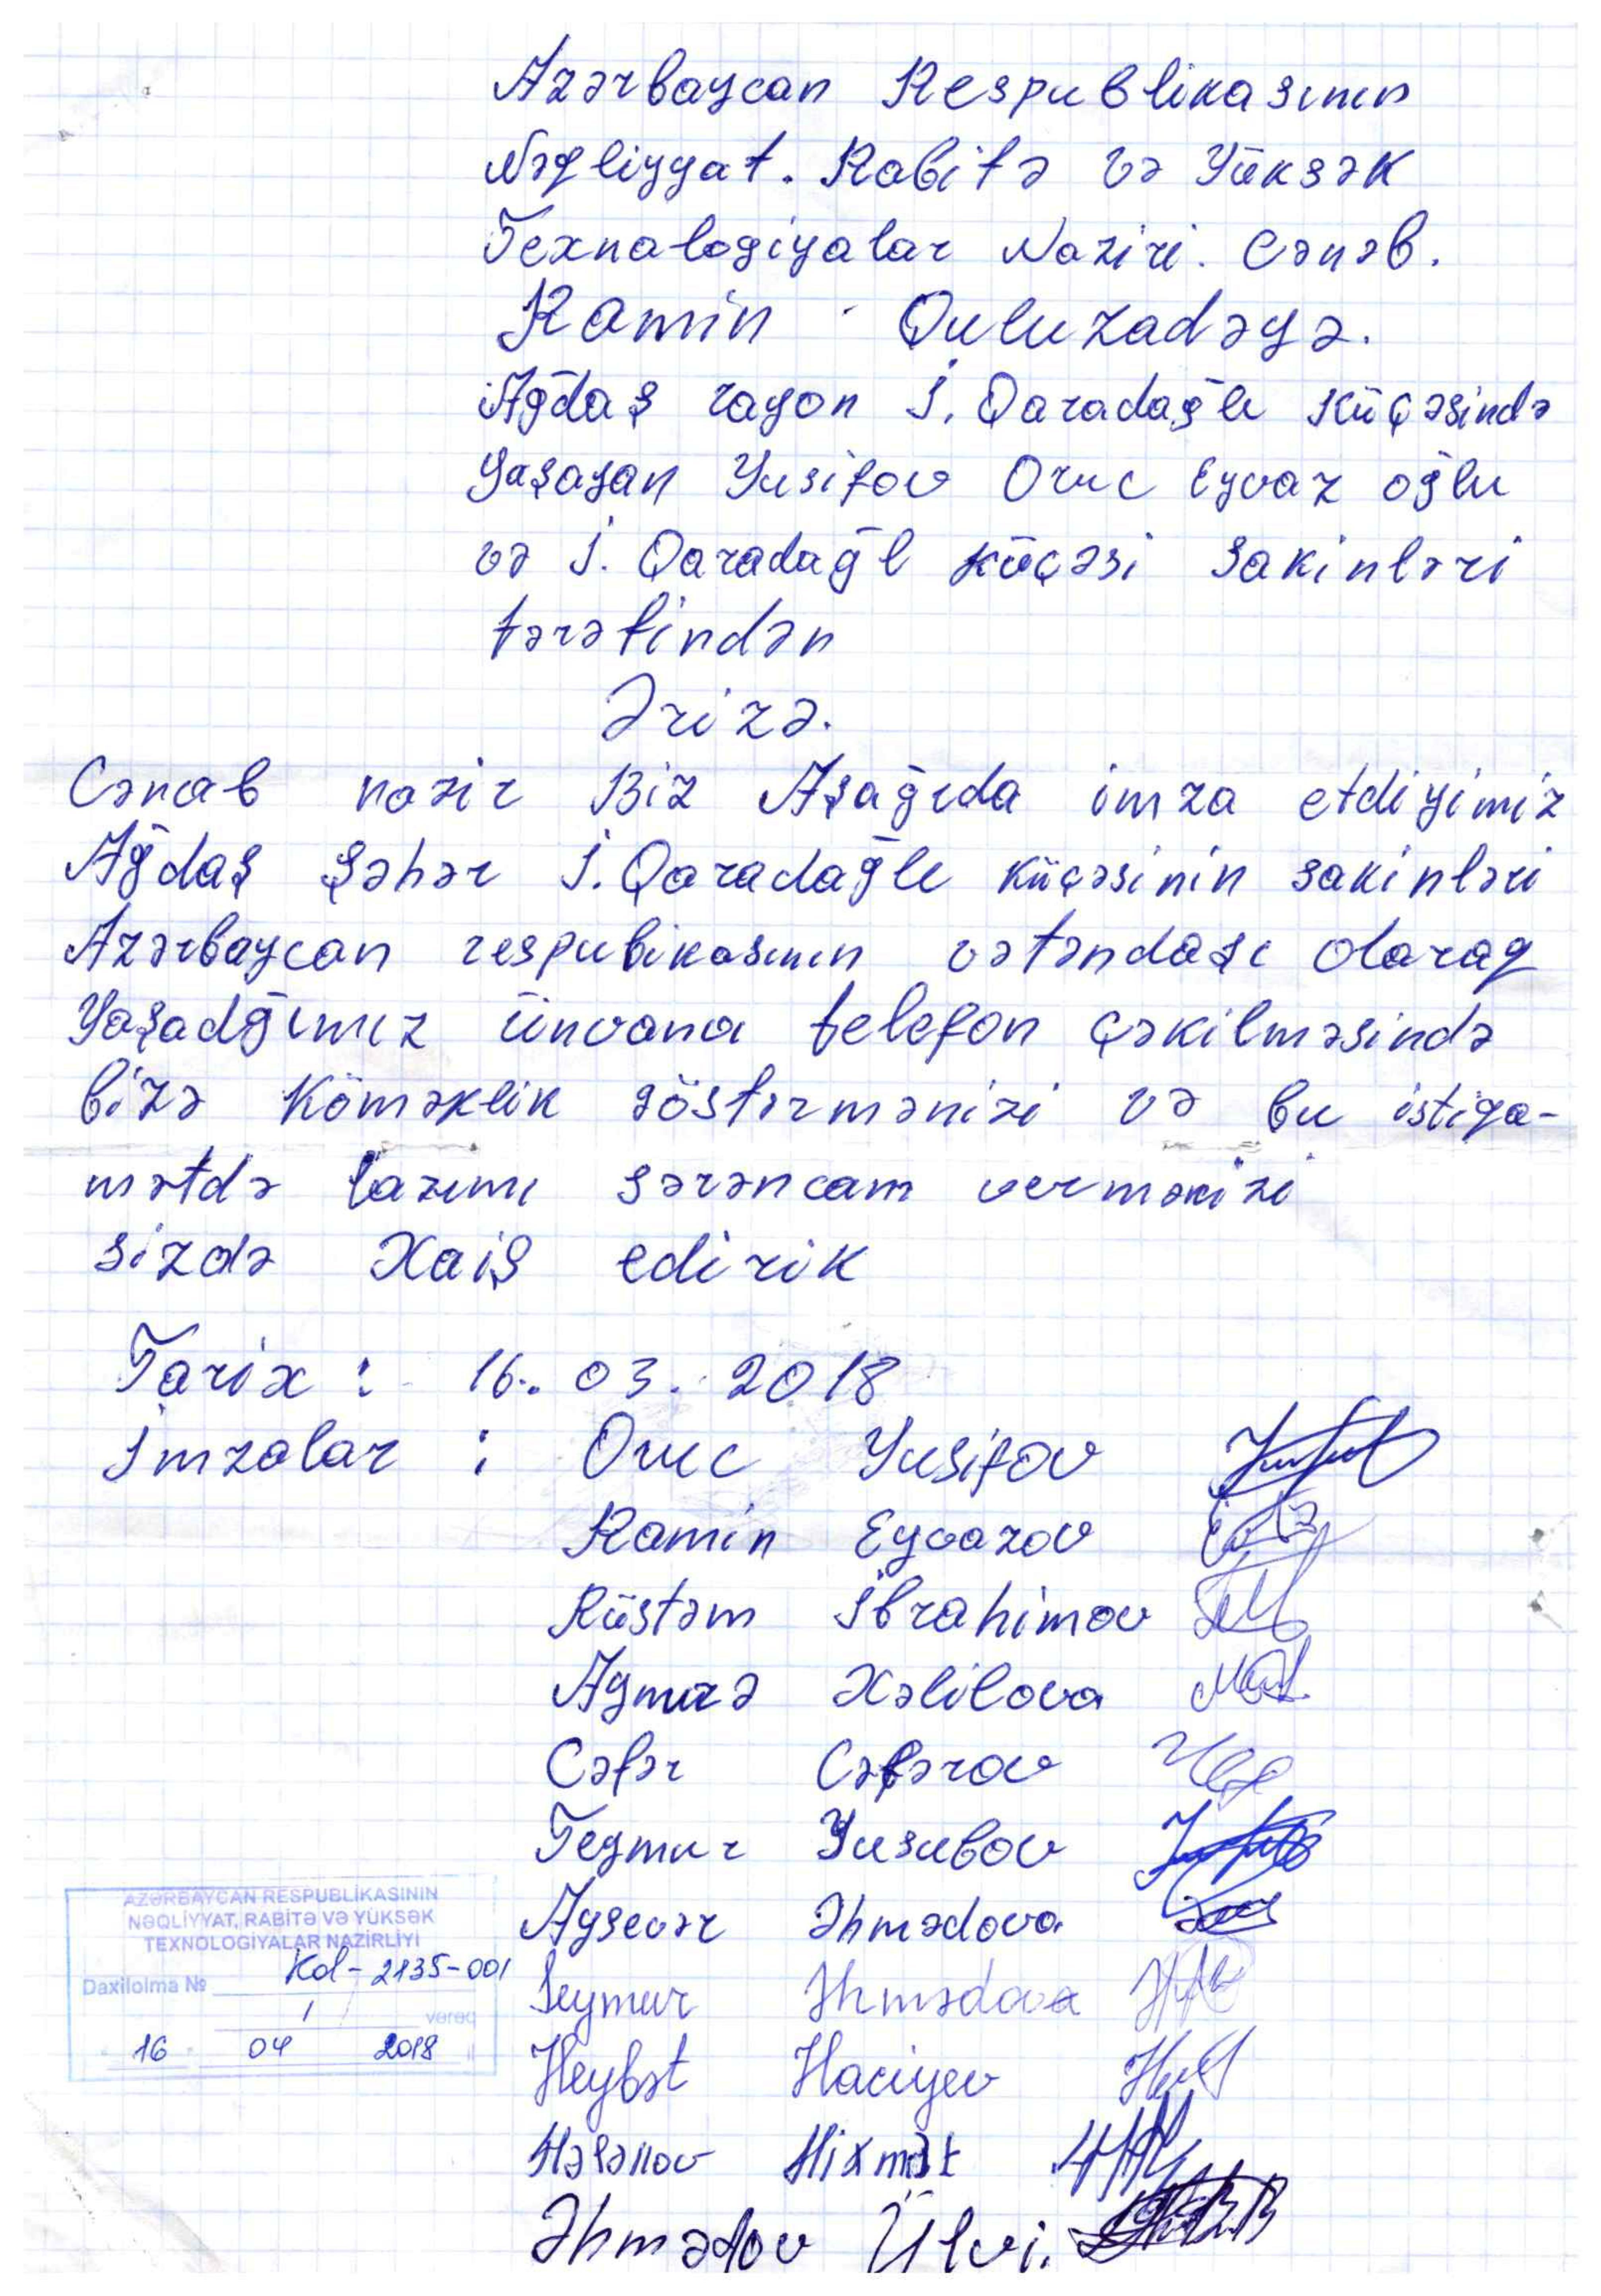 Azərbaycan Respublikasının
Nəqliyyat. Rabitə və Yüksək
Texnalogiyalar Naziri. Cənəb.
Ramin Quluzadəyə.
Ağdaş rayon İ. Qaradağlı Küçəsində
yaşayan Yusifov Oruc Eyvaz oğlu
və İ. Qaradağl küçəsi Sakinləri
tərəfindən
Ərizə.
Cənab nazir Biz Aşağıda imza etdiyimiz
Ağdaş Şəhər İ. Qaradağlı Küçəsinin sakinləri
Azərbaycan respubikasının vətəndaşı olaraq
Yaşadğımız ünvana telefon çəkilməsində
bizə Köməklik göstərmənizi və bu istiqa-
mətdə lazımı sərəncam vermənizi
sizdə Xaiş edirik
Tarix : 16. 03. 2018
İmzalar : Oruc Yusifov
Ramin Eyvazov
Rüstəm İbrahimov
Aymirə Xəlilova
Cəfər Cəfərov
Teymur Yusubov
Aysevər Əhmədova
Seymur Əhmədova
Heybət Hacıyev
Həsənov Hikmət
Əhmədov Ülvi.
AZƏRBAYCAN RESPUBLİKASININ
NƏQLİYYAT, RABİTƏ VƏ YÜKSƏK
TEXNOLOGİYALAR NAZİRLİYİ
Daxilolma № Kol-2135-001
1 vərəq
16 04 2018